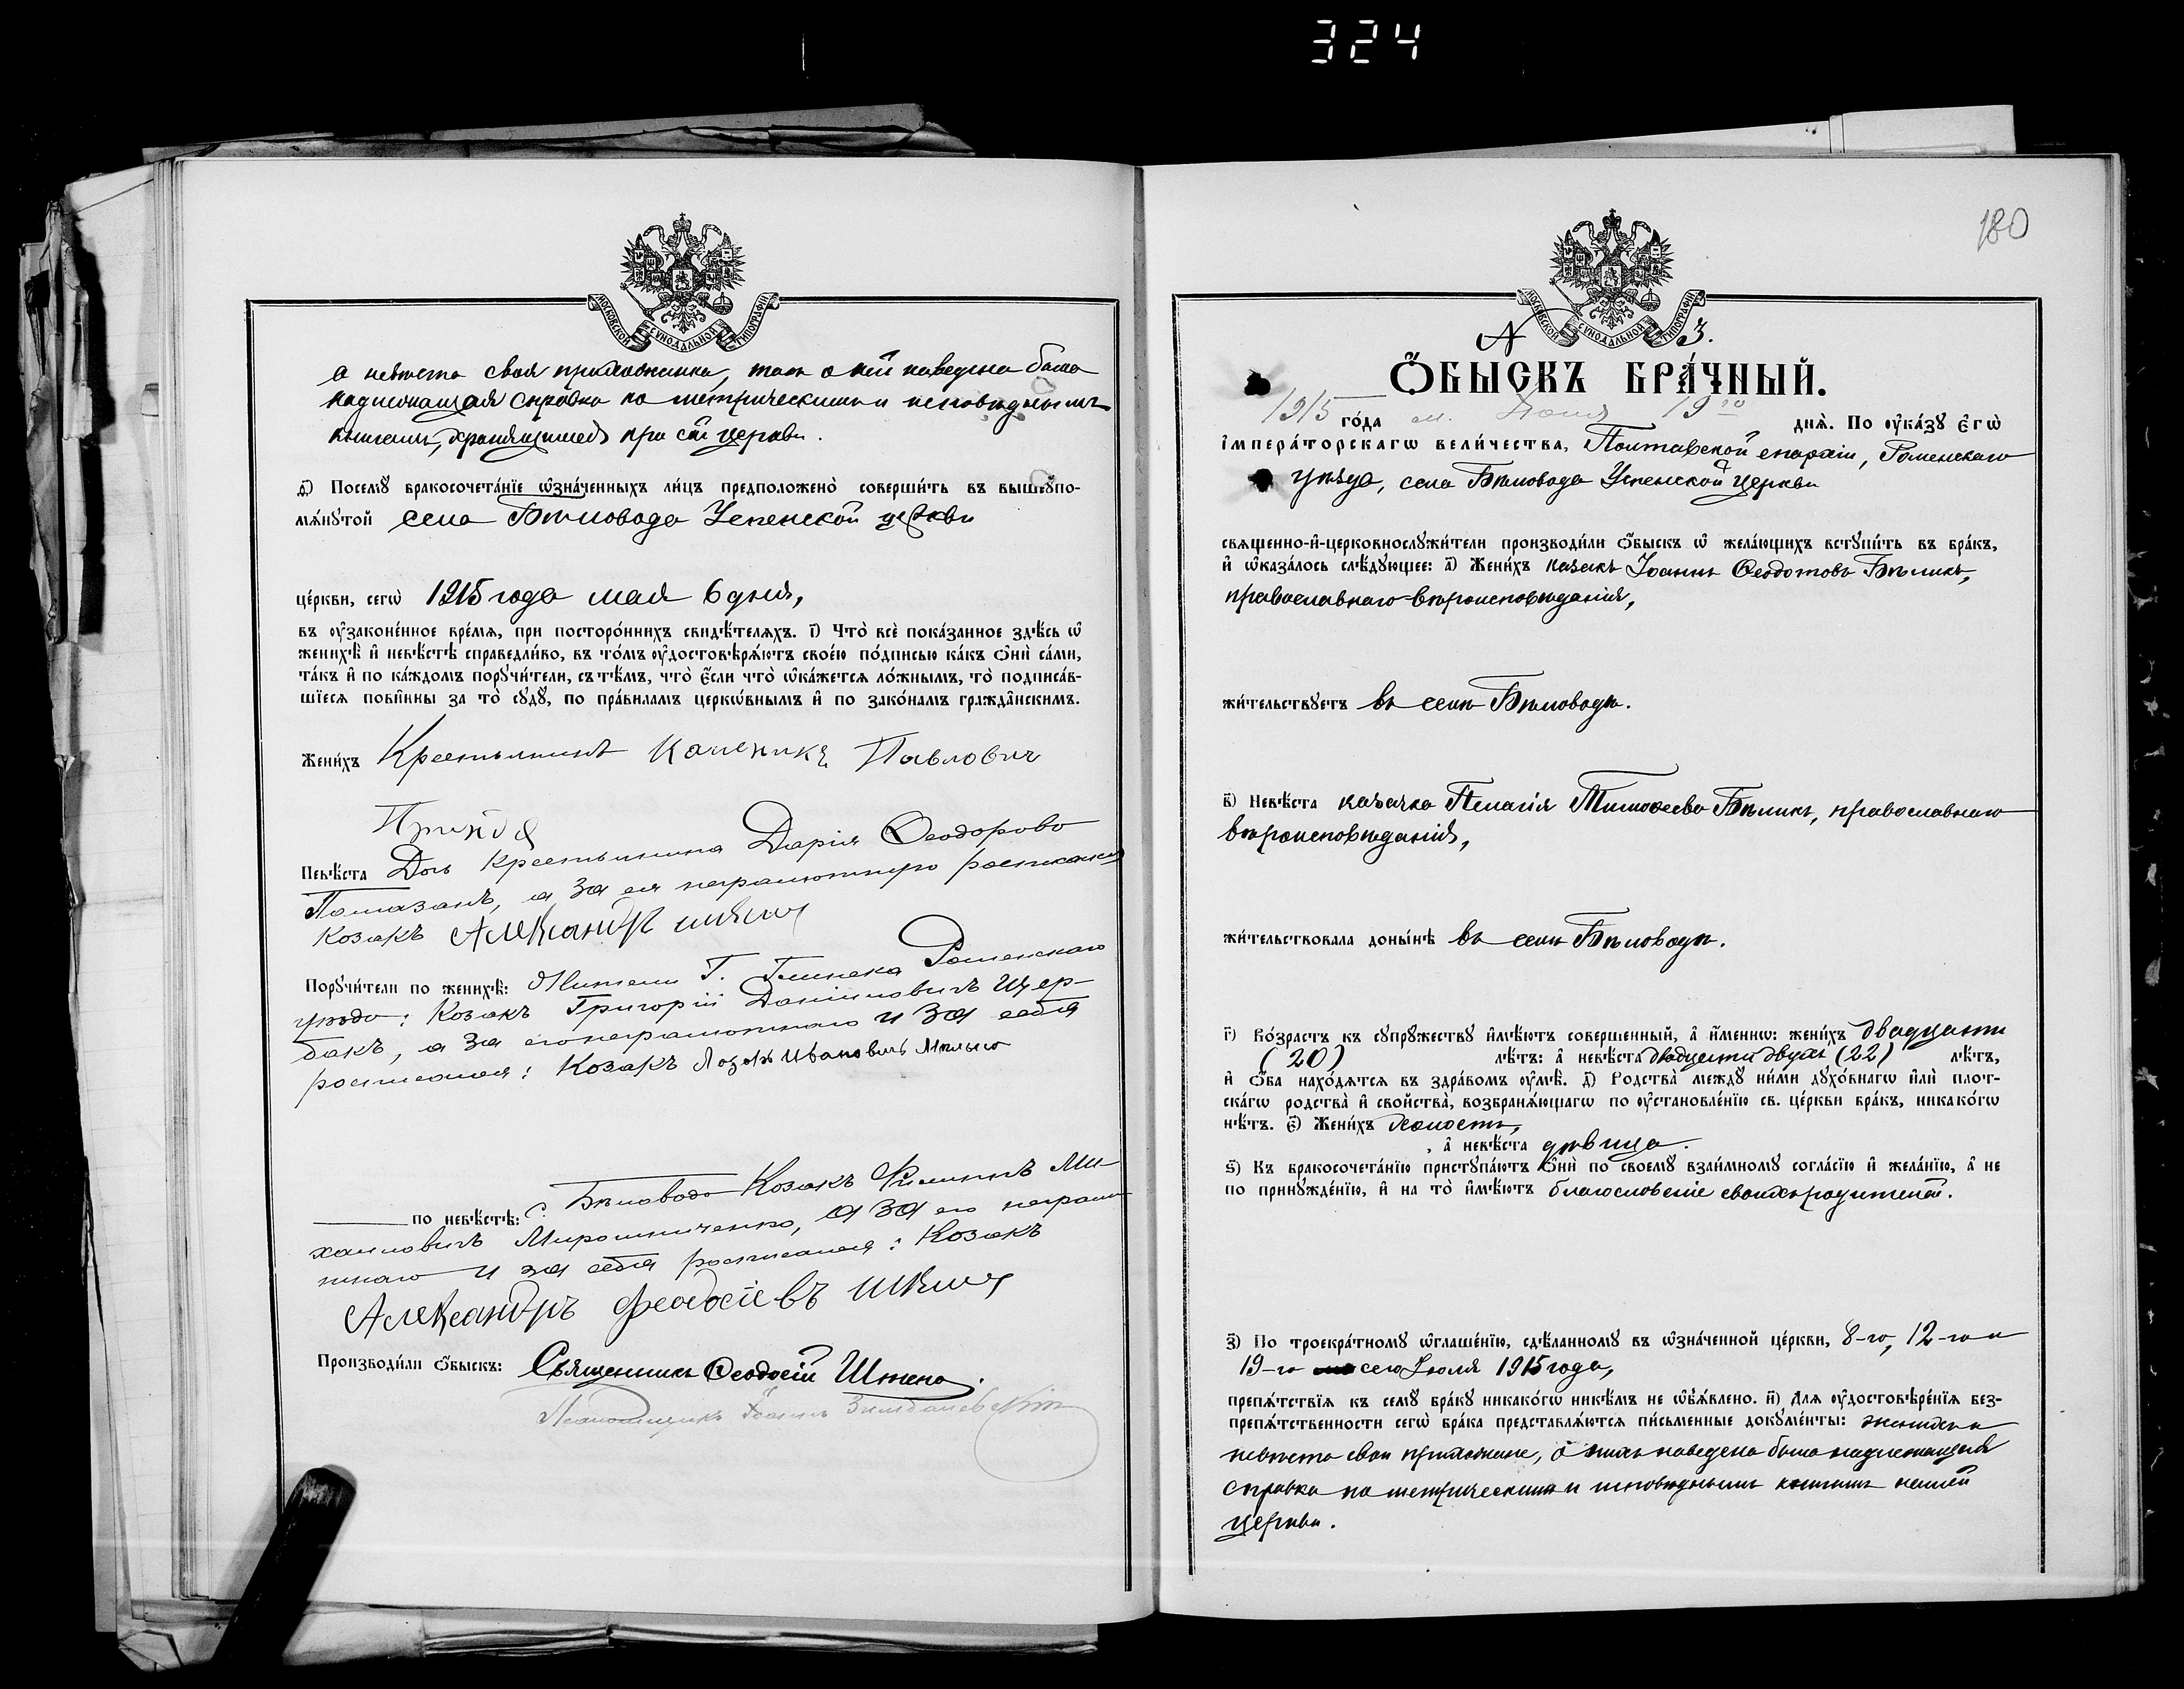 324
МОСКОВСКОЙ СѴНОДАЛЬНОЙ ТИПОГРАФІИ
а невѣста своя прихожанка, то о ней наведена была
надлежащая справка по метрическимъ и исповѣднымъ
книгамъ, хранящимся при сей церкви.
д҃і) Посемꙋ̀ бракосочета́нїе ѡ҆зна́ченныхъ ли́цъ предположено̀ соверши́ть въ вышеꙋпо-
мѧ́нꙋтой села Бѣловода Успенской церкви
це́ркви, сегѡ̀ 1915 года мая 6 дня,
въ ᲂу҆законе́нное вре́мѧ, при посторо́ннихъ свидѣ́телѧхъ. і҃) Что̀ всѐ пока́занное здѣ́сь ѡ҆
женихѣ̀ и҆ невѣ́стѣ справедли́во, въ то́мъ ᲂу҆достовѣрѧ́ютъ свое́ю по́дписью ка́къ ѻ҆нѝ са́ми,
та́къ и҆ по ка́ждомъ порꙋчи́тели, съ тѣ́мъ, что̀ є҆́сли что̀ ѡ҆ка́жетсѧ ло́жнымъ, то̀ подписа́в-
шїесѧ пови́нны за то̀ сꙋдꙋ̀, по пра́виламъ церкѡ́внымъ и҆ по зако́намъ гражда́нскимъ.
Жени́хъ Крестьянинъ Павлович
Невѣ́ста Дочь крестьянина Дарія Ѳеодорова
а за ея неграмотную
Козакъ Александръ
Порꙋчи́тели по женихѣ̀: Жители Г. Глинска Роменскаго
уѣзда: Козакъ Григорій Даніиловичъ Щер-
бакъ, а за его неграмотнаго и за себя
росписался: Козакъ Ивановичъ
по невѣ́стѣ: с. Бѣловода Козакъ Филиппъ Ми-
хаиловичъ Мирошниченко, а за его неграмо-
тнаго и за себя росписался: Козакъ
Александръ Феодосіевъ
Производи́ли ѻ҆́быскъ: Священникъ Ѳеодосій
Псаломщикъ Іоаннъ
180
МОСКОВСКОЙ СѴНОДАЛЬНОЙ ТИПОГРАФІИ
№ 3.
Ѻ҆́БЫСКЪ БРА́ЧНЫЙ.
1915 го́да м. Іюля 19 днѧ̀. По ᲂу҆ка́зꙋ Є҆гѡ̀
І҆мпера́торскагѡ вели́чества, Полтавской епархіи, Роменскаго
уѣзда, села Бѣловода Успенской церкви
свѧщенно-и҆-церковнослꙋжи́тели производи́ли ѻ҆́быскъ ѡ҆ жела́ющихъ встꙋпи́ть въ бра́къ,
и҆ ѡ҆каза́лось слѣ́дꙋющее: а҃) Жени́хъ казакъ Іоаннъ Ѳеодотовъ Бѣликъ,
православнаго вѣроисповѣданія,
жи́тельствꙋетъ въ селѣ Бѣловодѣ.
в҃) Невѣ́ста казачка Пелагія Тимоѳеева Бѣликъ, православнаго
вѣроисповѣданія,
жи́тельствовала доны́нѣ въ селѣ Бѣловодѣ.
г҃) Во́зрастъ къ сꙋпрꙋ́жествꙋ и҆мѣ́ютъ соверше́нный, а҆ и҆́меннѡ: жени́хъ двадцати
(20) лѣ́тъ: а҆ невѣ́ста двадцати двухъ (22) лѣ́тъ,
и҆ ѻ҆́ба нахо́дѧтсѧ въ здра́вомъ ᲂу҆мѣ̀. д҃) Родства̀ междꙋ̀ ни́ми дꙋхо́внагѡ и҆лѝ плот-
ска́гѡ родства̀ и҆ сво́йства̀, возбранѧ́ющагѡ по ᲂу҆становле́нїю св. це́ркви бра́къ, никако́гѡ
нѣ́тъ. є҃) Жени́хъ холостъ,
, а҆ невѣ́ста дѣвица.
ѕ҃) Къ бракосочета́нїю пристꙋпа́ютъ ѻ҆нѝ по своемꙋ̀ взаи́мномꙋ согла́сїю и҆ жела́нїю, а҆ не
по принꙋжде́нїю, и҆ на то̀ и҆мѣ́ютъ благословеніе своихъ родителей.
з҃) По троекра́тномꙋ ѡ҆глаше́нїю, сдѣ́ланномꙋ въ ѡ҆зна́ченной це́ркви, 8-го, 12-го и
19-го сего Іюля 1915 года,
препѧ́тствїѧ къ семꙋ̀ бра́кꙋ никако́гѡ никѣ́мъ не ѡ҆б̾ѧ́влено. и҃) Длѧ ᲂу҆достовѣре́нїѧ без-
препѧ́тственности сегѡ̀ бра́ка представлѧ́ютсѧ пи́сьменные докꙋме́нты: женихъ и
невѣста свои прихожане, о нихъ наведена была надлежащая
справка по метрическимъ и исповѣднымъ книгамъ нашей
церкви.